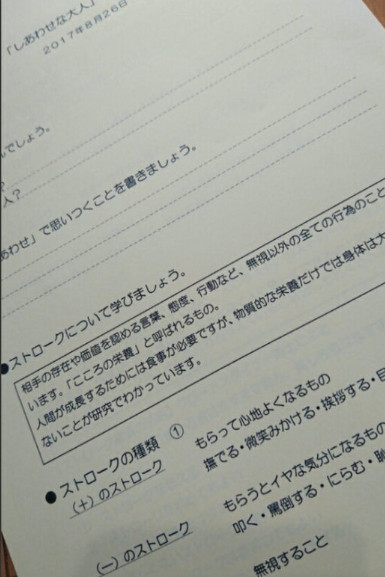 「しあわせな大人」
2017年8月26日
んでしょう。
?
人?
あわせ」で思いつくことを書きましょう。
●ストロークについて学びましょう。
相手の存在や価値を認める言葉、態度、行動など、無視以外の全ての行為のこと
います。「こころの栄養」と呼ばれるもの。
人間が成長するためには食事が必要ですが、物質的な栄養だけでは身体は大
ないことが研究でわかっています。
●ストロークの種類 ①
(+)のストローク もらって心地よくなるもの
撫でる・微笑みかける・挨拶する・
もらうとイヤな気分になるもの
(−)のストローク 叩く・罵倒する・にらむ・
無視すること